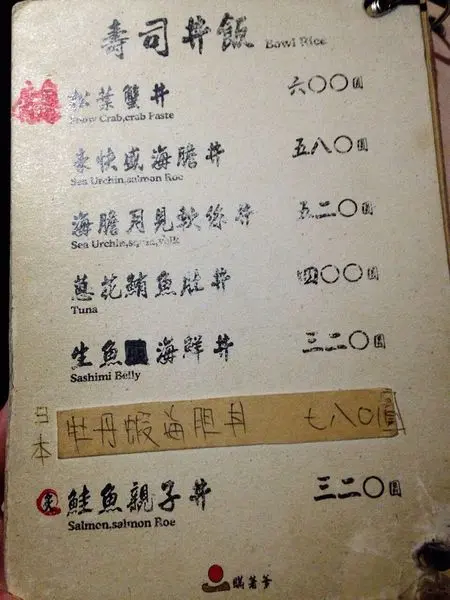 壽司丼飯 Bowl Rice
松葉蟹丼 六〇〇圓
Snow Crab,crab Paste
東快盛海膽丼 五八〇圓
Sea Urchin,salmon Roe
海膽月見軟絲丼 五二〇圓
Sea Urchin,squid,yolk
蔥花鮪魚肚丼 四〇〇圓
Tuna
生魚 海鮮丼 三二〇圓
Sashimi Belly
日本 牡丹蝦海胆丼 七八〇圓
炙 鮭魚親子丼 三二〇圓
Salmon,salmon Roe
瞞著爹